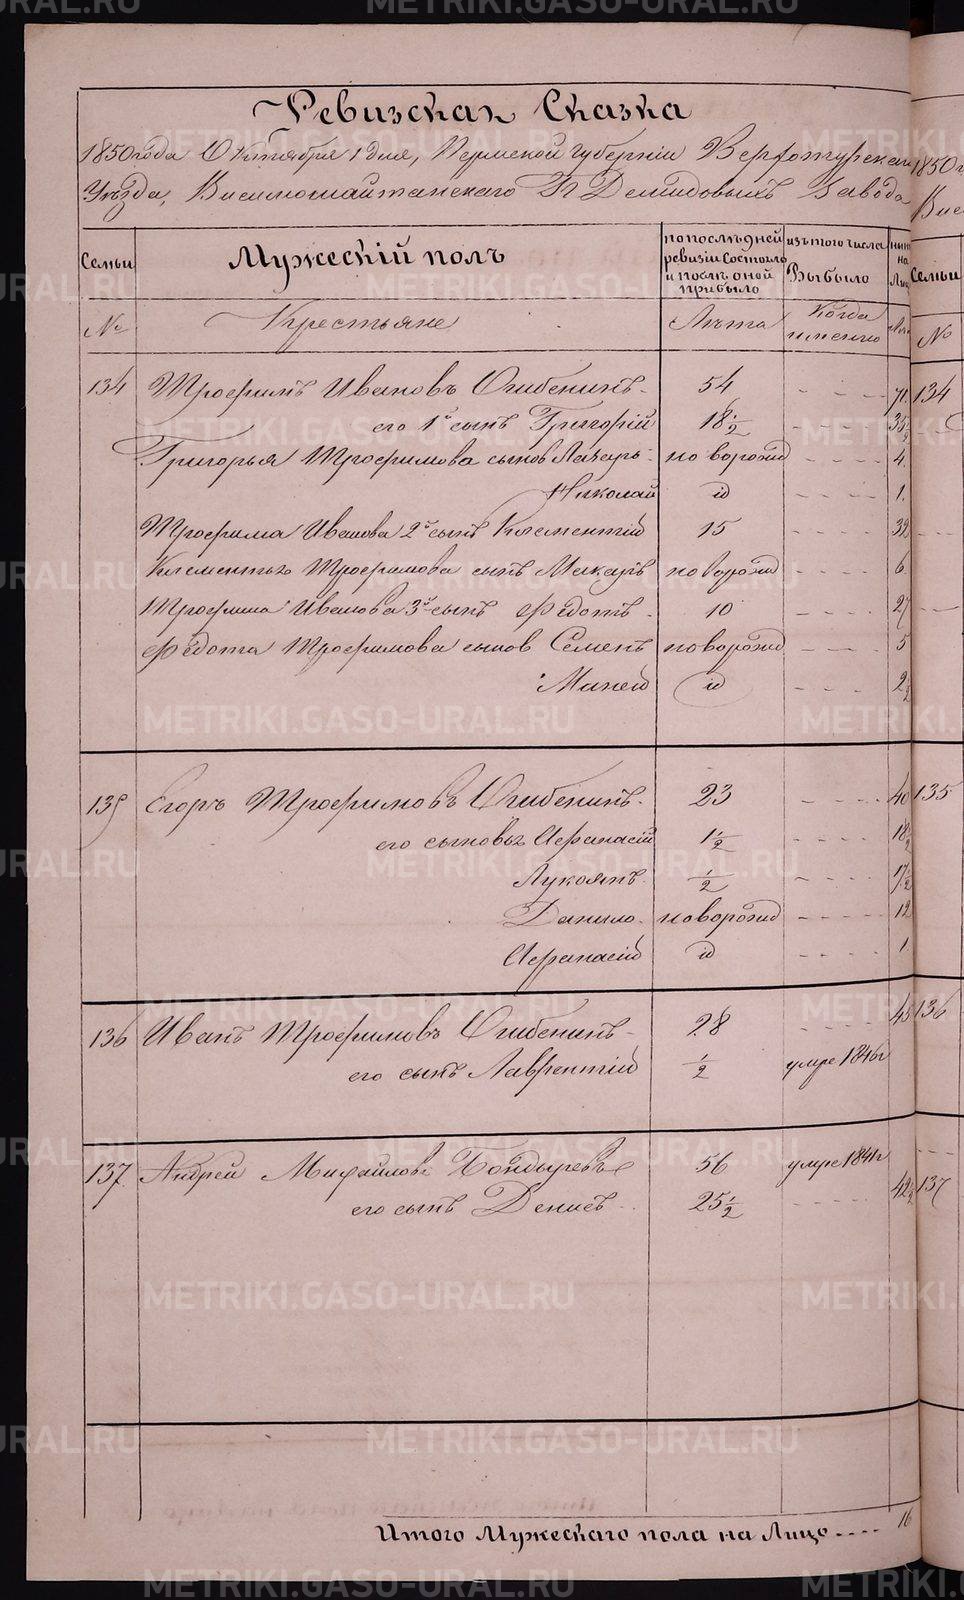 Ревизская Сказка
1850 года Октября 1 дня, Пермской губерніи Верхотурскаго
Уезда, Висимошайтанскаго Г.Г. Демидовыхъ Завода
Семьи Мужескій полъ по последней ревизіи состояло и после оной прибыло изъ того числа Выбыло ныне на Лицо
№ Крестьяне Лета Когда именно Лета
134 Трофимъ Ивановъ Огибенинъ 54 71
его 1й сынъ Григорій 18 1/2 35 1/2
Григорья Трофимова сынов Лазарь новорожд 4
Николай id 1
Трофима Иванова 2й сынъ Климентій 15 32
Климентья Трофимова сынъ Макаръ новорожд 6
Трофима Иванова 3й сынъ Федотъ 10 27
Федота Трофимова сынов Семенъ новорожд 5
id 2 1/2
135 Егоръ Трофимовъ Огибенинъ 23 40
его сыновья Афанасій 1 1/2 18 1/2
Лукоянъ 1/2 17 1/2
Данило новорожд 12
Афанасій id 1
136 Иванъ Трофимовъ Огибенинъ 28 45
его сынъ Лаврентій 1/2 умре 1846г
137 Андрей Михайловъ Бондыревъ 56 умре 1841г
его сынъ Денисъ 25 1/2 42 1/2
Итого Мужескаго пола на Лицо 16
1850
Семьи
№
134
135
136
137
METRIKI.GASO-URAL.RU